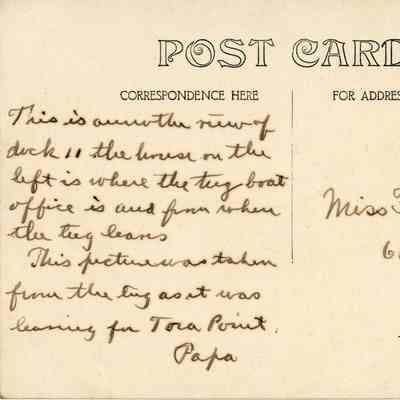 POST CARD
CORRESPONDENCE HERE
FOR ADDRES
This is another view of
dock 11 the house on the
left is where the tug boat
office is and from when
the tug leans
This picture was taken
from the tug as it was
leaning for Tora Point.
Papa
Miss
6